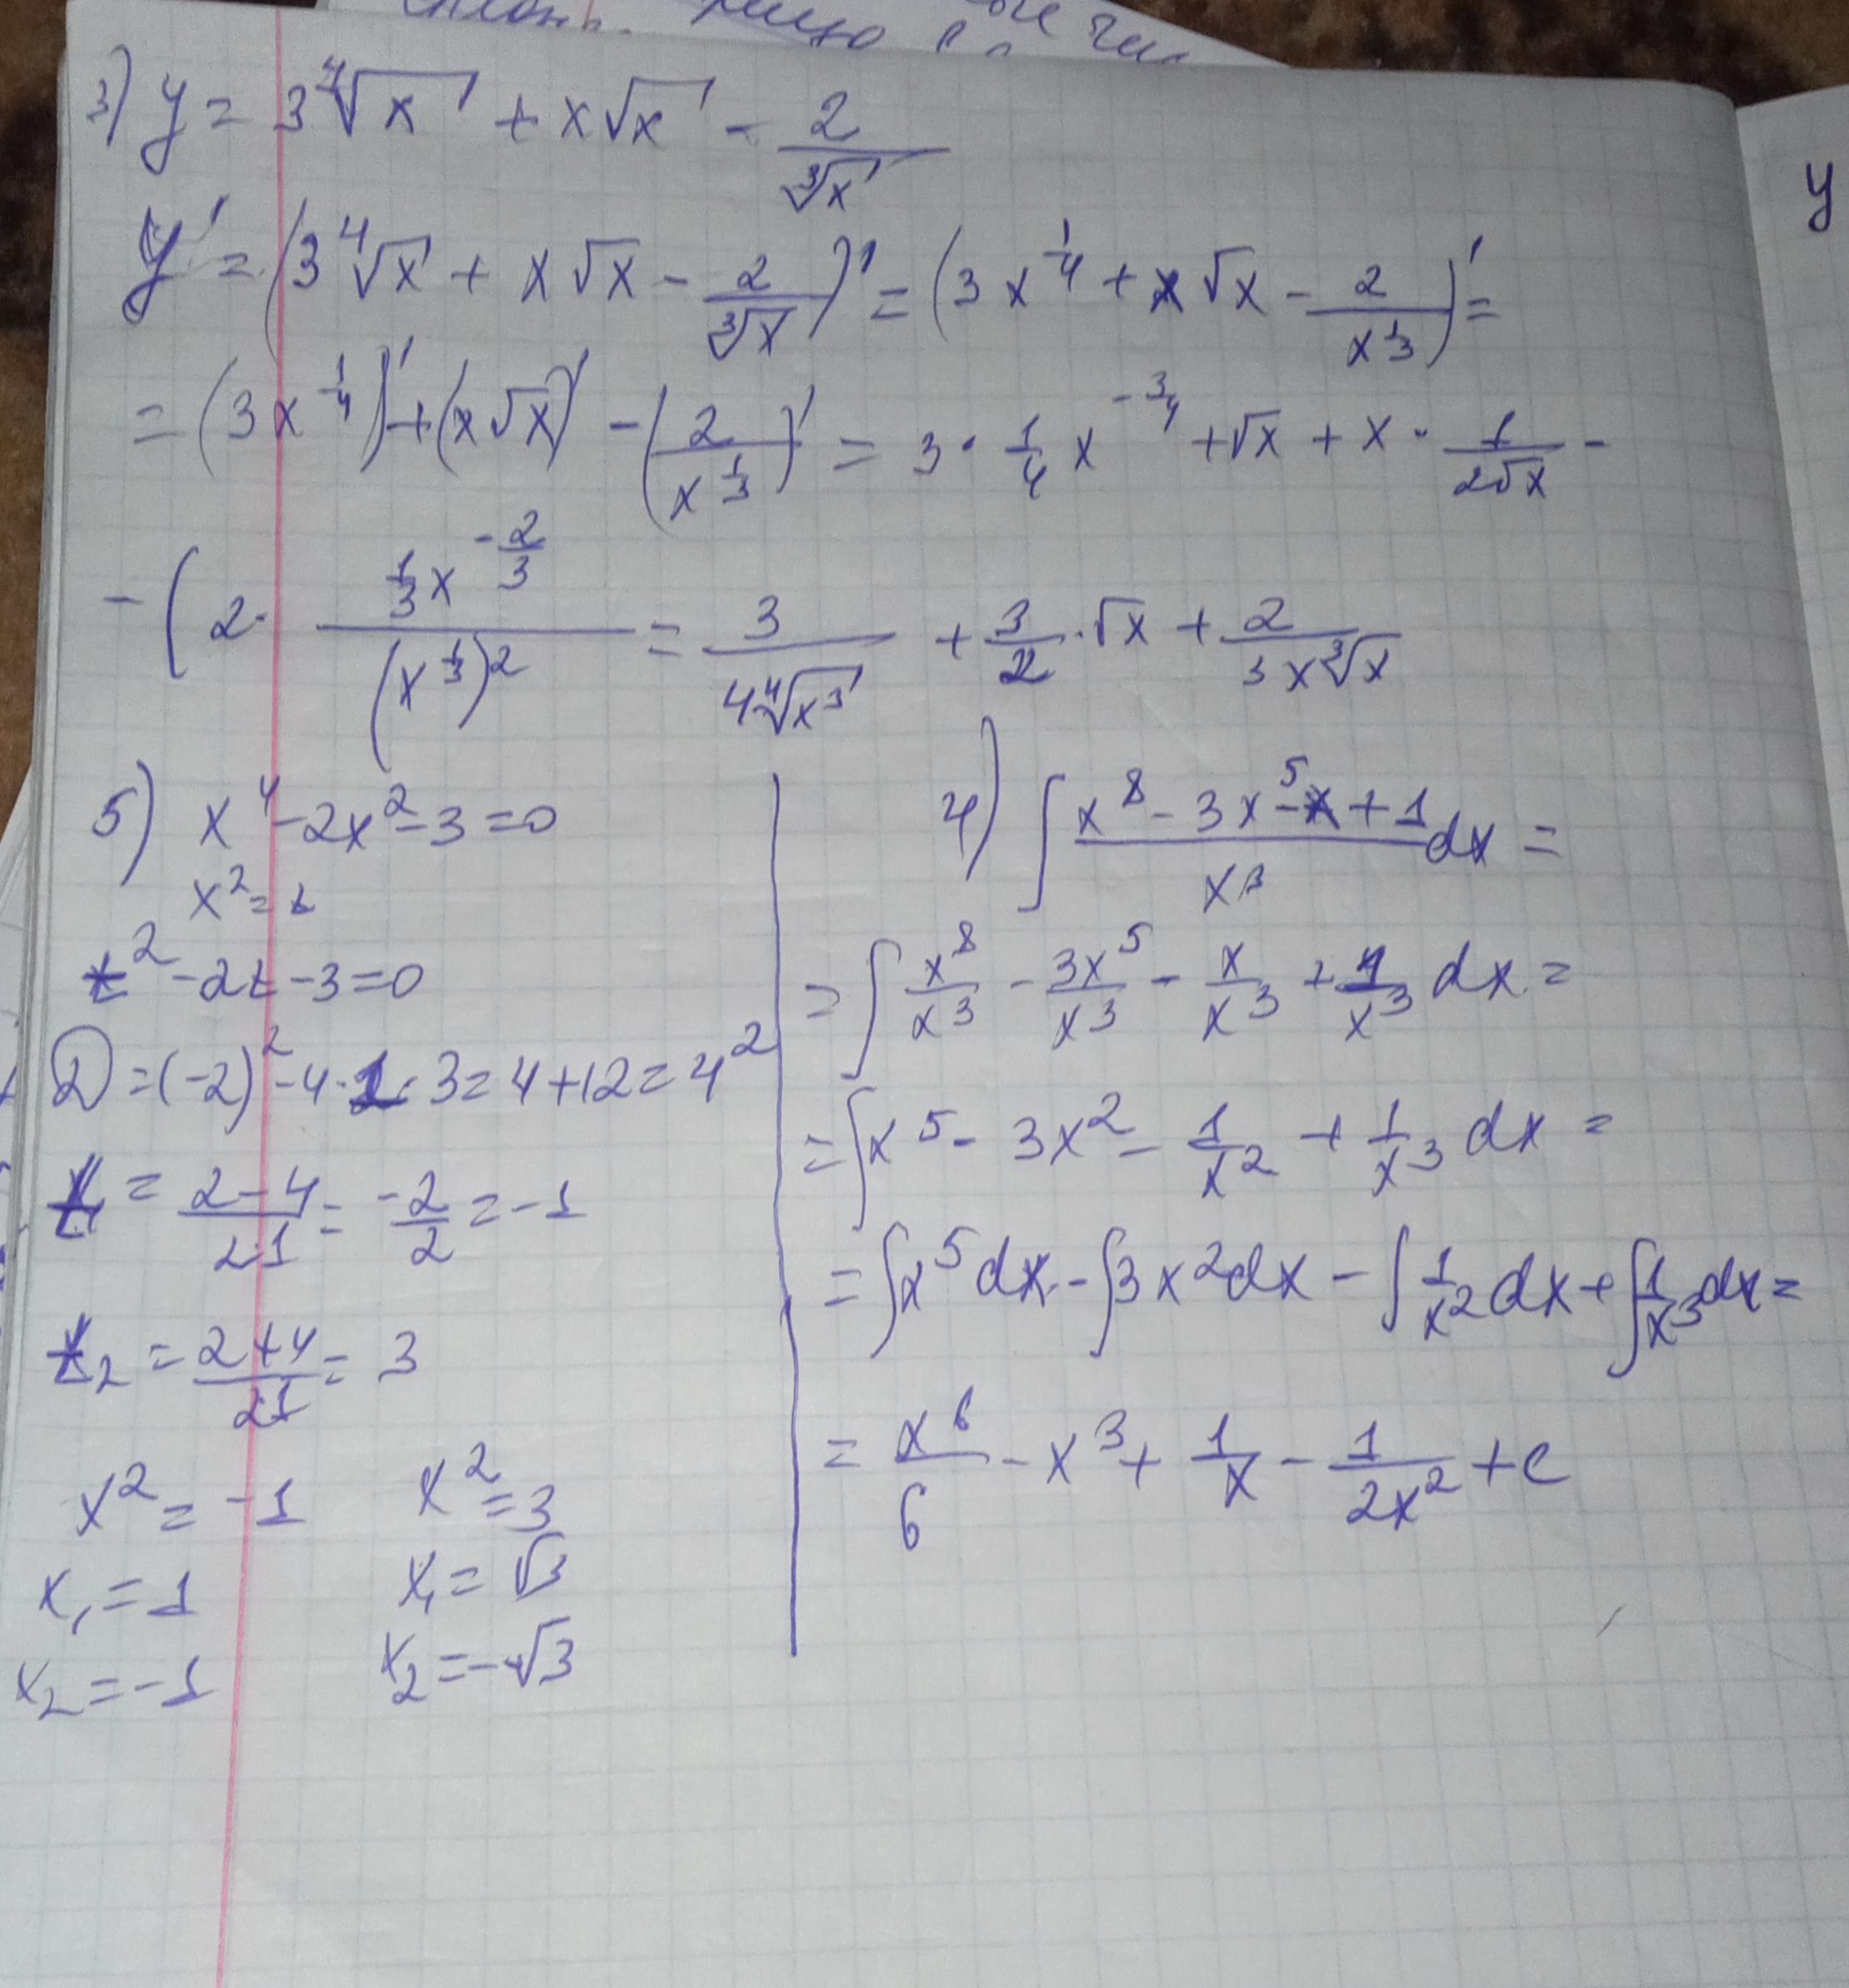 3) y = 3∜x + x√x - 2/∛x
y
y' = (3∜x + x√x - 2/∛x)' = (3x^(1/4) + x√x - 2/x^(1/3))' =
= (3x^(1/4))' + (x√x)' - (2/x^(1/3))' = 3 · 1/4 x^(-3/4) + √x + x · 1/(2√x) -
- (2 · (1/3 x^(-2/3))/(x^(1/3))^2 = 3/(4∜x^3) + 3/2 · √x + 2/(3x∛x)
5) x^4 - 2x^2 - 3 = 0
x^2 = t
t^2 - 2t - 3 = 0
D = (-2)^2 - 4 · 1 · 3 = 4 + 12 = 4^2
t1 = (2-4)/(2·1) = -2/2 = -1
t2 = (2+4)/(2·1) = 3
x^2 = -1 x^2 = 3
x1 = 1 x1 = √3
x2 = -1 x2 = -√3
4) ∫ (x^8 - 3x^5 - x + 1)/x^3 dx =
= ∫ x^8/x^3 - 3x^5/x^3 - x/x^3 + 1/x^3 dx =
= ∫ x^5 - 3x^2 - 1/x^2 + 1/x^3 dx =
= ∫x^5 dx - ∫3x^2 dx - ∫1/x^2 dx + ∫1/x^3 dx =
= x^6/6 - x^3 + 1/x - 1/(2x^2) + c